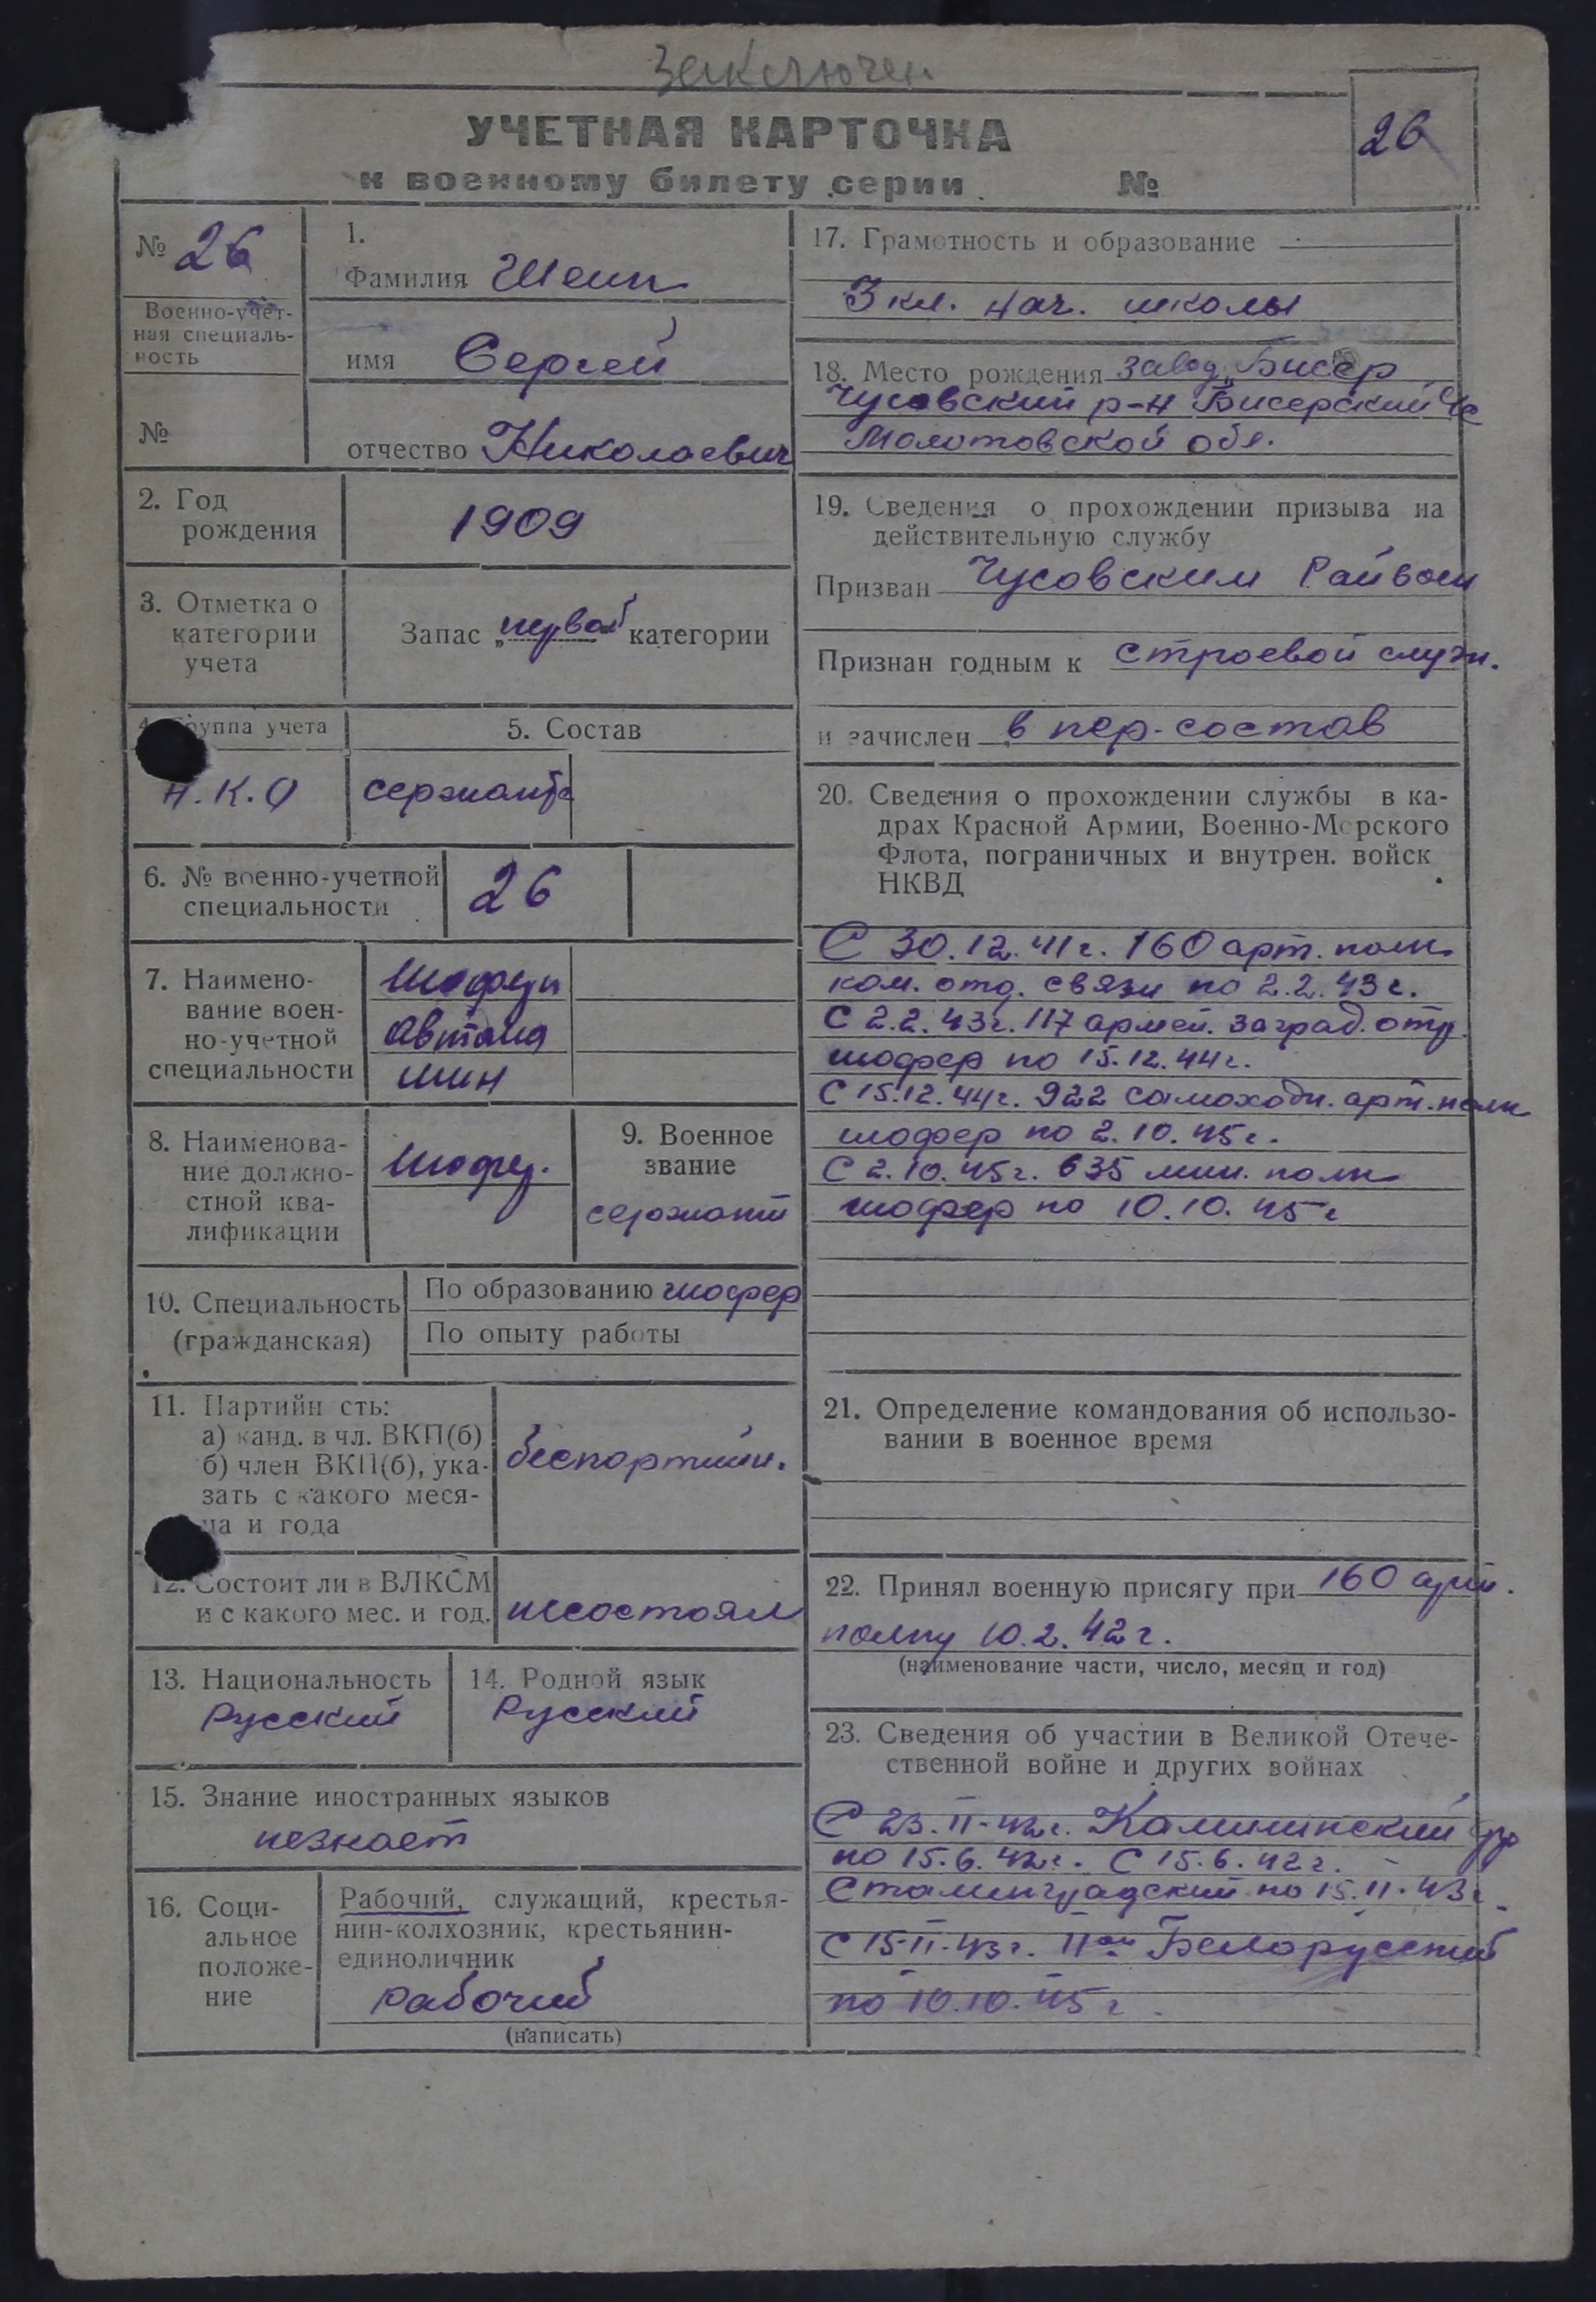 Заключен
УЧЕТНАЯ КАРТОЧКА
к военному билету серии №
26
№ 26
Военно-учет-
ная специаль-
ность
№
1.
Фамилия Шеин
имя Сергей
отчество Николаевич
2. Год
рождения
1909
3. Отметка о
категории
учета
Запас „первой" категории
4. Группа учета
Н.К.О
5. Состав
сержантс
6. № военно-учетной
специальности
26
7. Наимено-
вание воен-
но-учетной
специальности
Шофера
Автома
шин
8. Наименова-
ние должно-
стной ква-
лификации
Шофер.
9. Военное
звание
сержант
10. Специальность
(гражданская)
По образованию шофер
По опыту работы
11. Партийн сть:
а) канд. в чл. ВКП(б)
б) член ВКП(б), ука-
зать с какого меся-
ца и года
беспартийн.
12. Состоит ли в ВЛКСМ
и с какого мес. и год.
несостоял
13. Национальность
Русский
14. Родной язык
Русский
15. Знание иностранных языков
незнает
16. Соци-
альное
положе-
ние
Рабочий, служащий, крестья-
нин-колхозник, крестьянин-
единоличник
рабочий
(написать)
17. Грамотность и образование
3 кл. нач. школы
18. Место рождения завод „Бисер
Чусовский р-н Бисерский с/с
Молотовской обл.
19. Сведения о прохождении призыва на
действительную службу
Призван Чусовским Райвоен
Признан годным к строевой служ.
и зачислен в пер-состав
20. Сведения о прохождении службы в ка-
драх Красной Армии, Военно-Морского
Флота, пограничных и внутрен. войск
НКВД
С 30.12.41г. 160 арт. полк
ком. отд. связи по 2.2.43г.
С 2.2.43г. 117 армей. заград. отр.
шофер по 15.12.44г.
С 15.12.44г. 922 самоходн. арт. полк
шофер по 2.10.45г.
С 2.10.45г. 635 мин. полк
шофер по 10.10.45г
21. Определение командования об использо-
вании в военное время
22. Принял военную присягу при 160 арт.
полку 10.2.42г.
(наименование части, число, месяц и год)
23. Сведения об участии в Великой Отече-
ственной войне и других войнах
С 23.II-42г. Калининский фр
по 15.6.42г. С 15.6.42г.
Сталинградский по 15.II.43г.
С 15-II-43г. IIой Белорусский
по 10.10.45г.